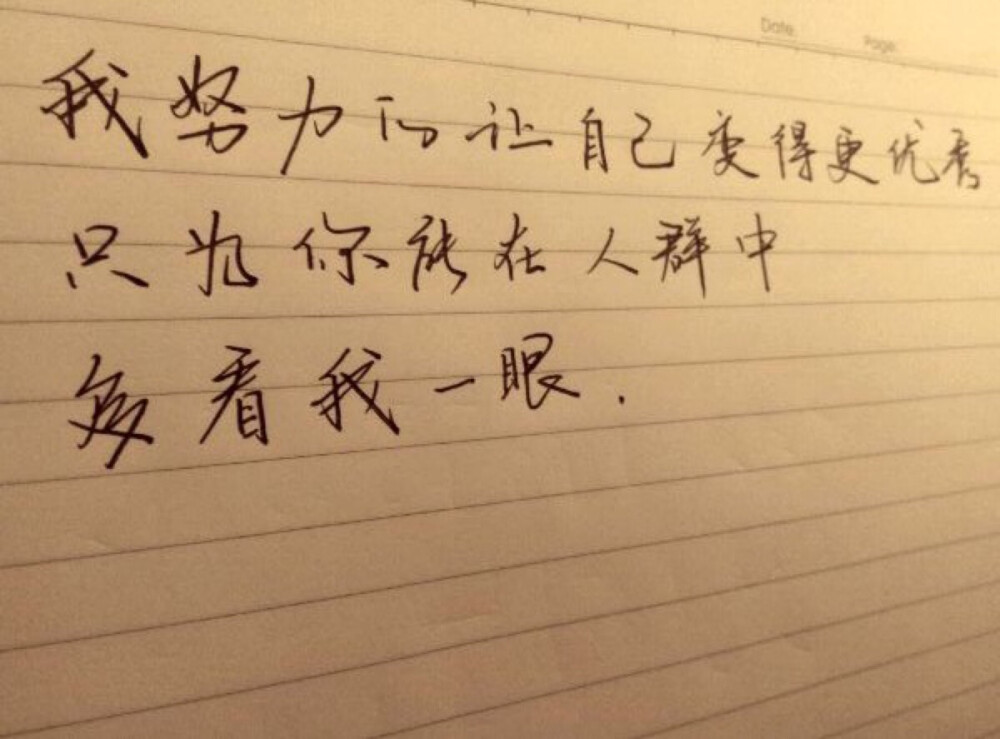 Date:
Page:
我努力的让自己变得更优秀
只为你能在人群中
多看我一眼.